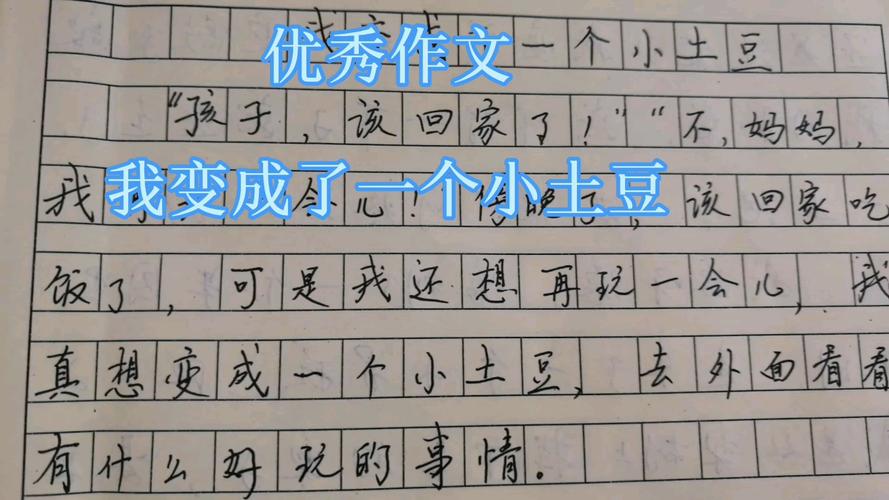 优秀作文
一个小土豆
“孩子，该回家了！”“不，妈妈，
我变成了一个小土豆
我 会儿！傍晚了，该回家吃
饭了，可是我还想再玩一会儿，我
真想变成一个小土豆，去外面看看
有什么好玩的事情.